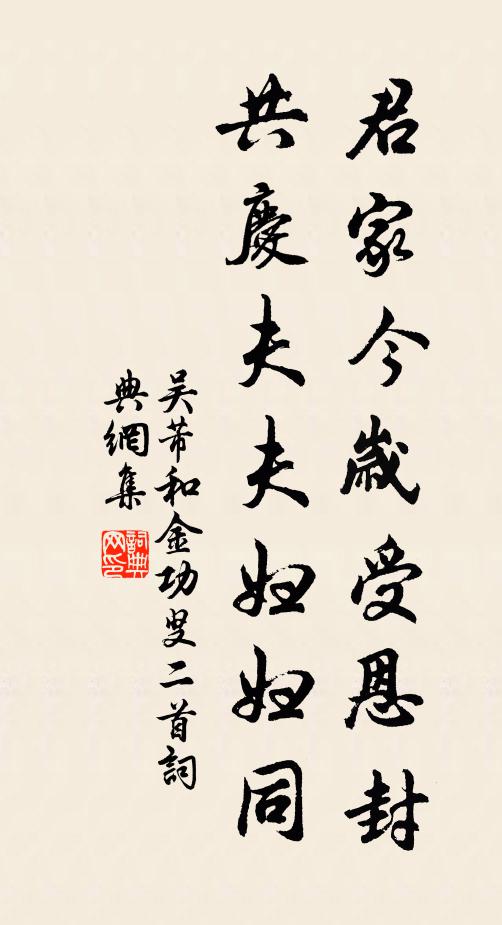 君家今歲受恩封
共慶夫夫婦婦同
吴芾和金功叟二首詞
典網集
詞典網印